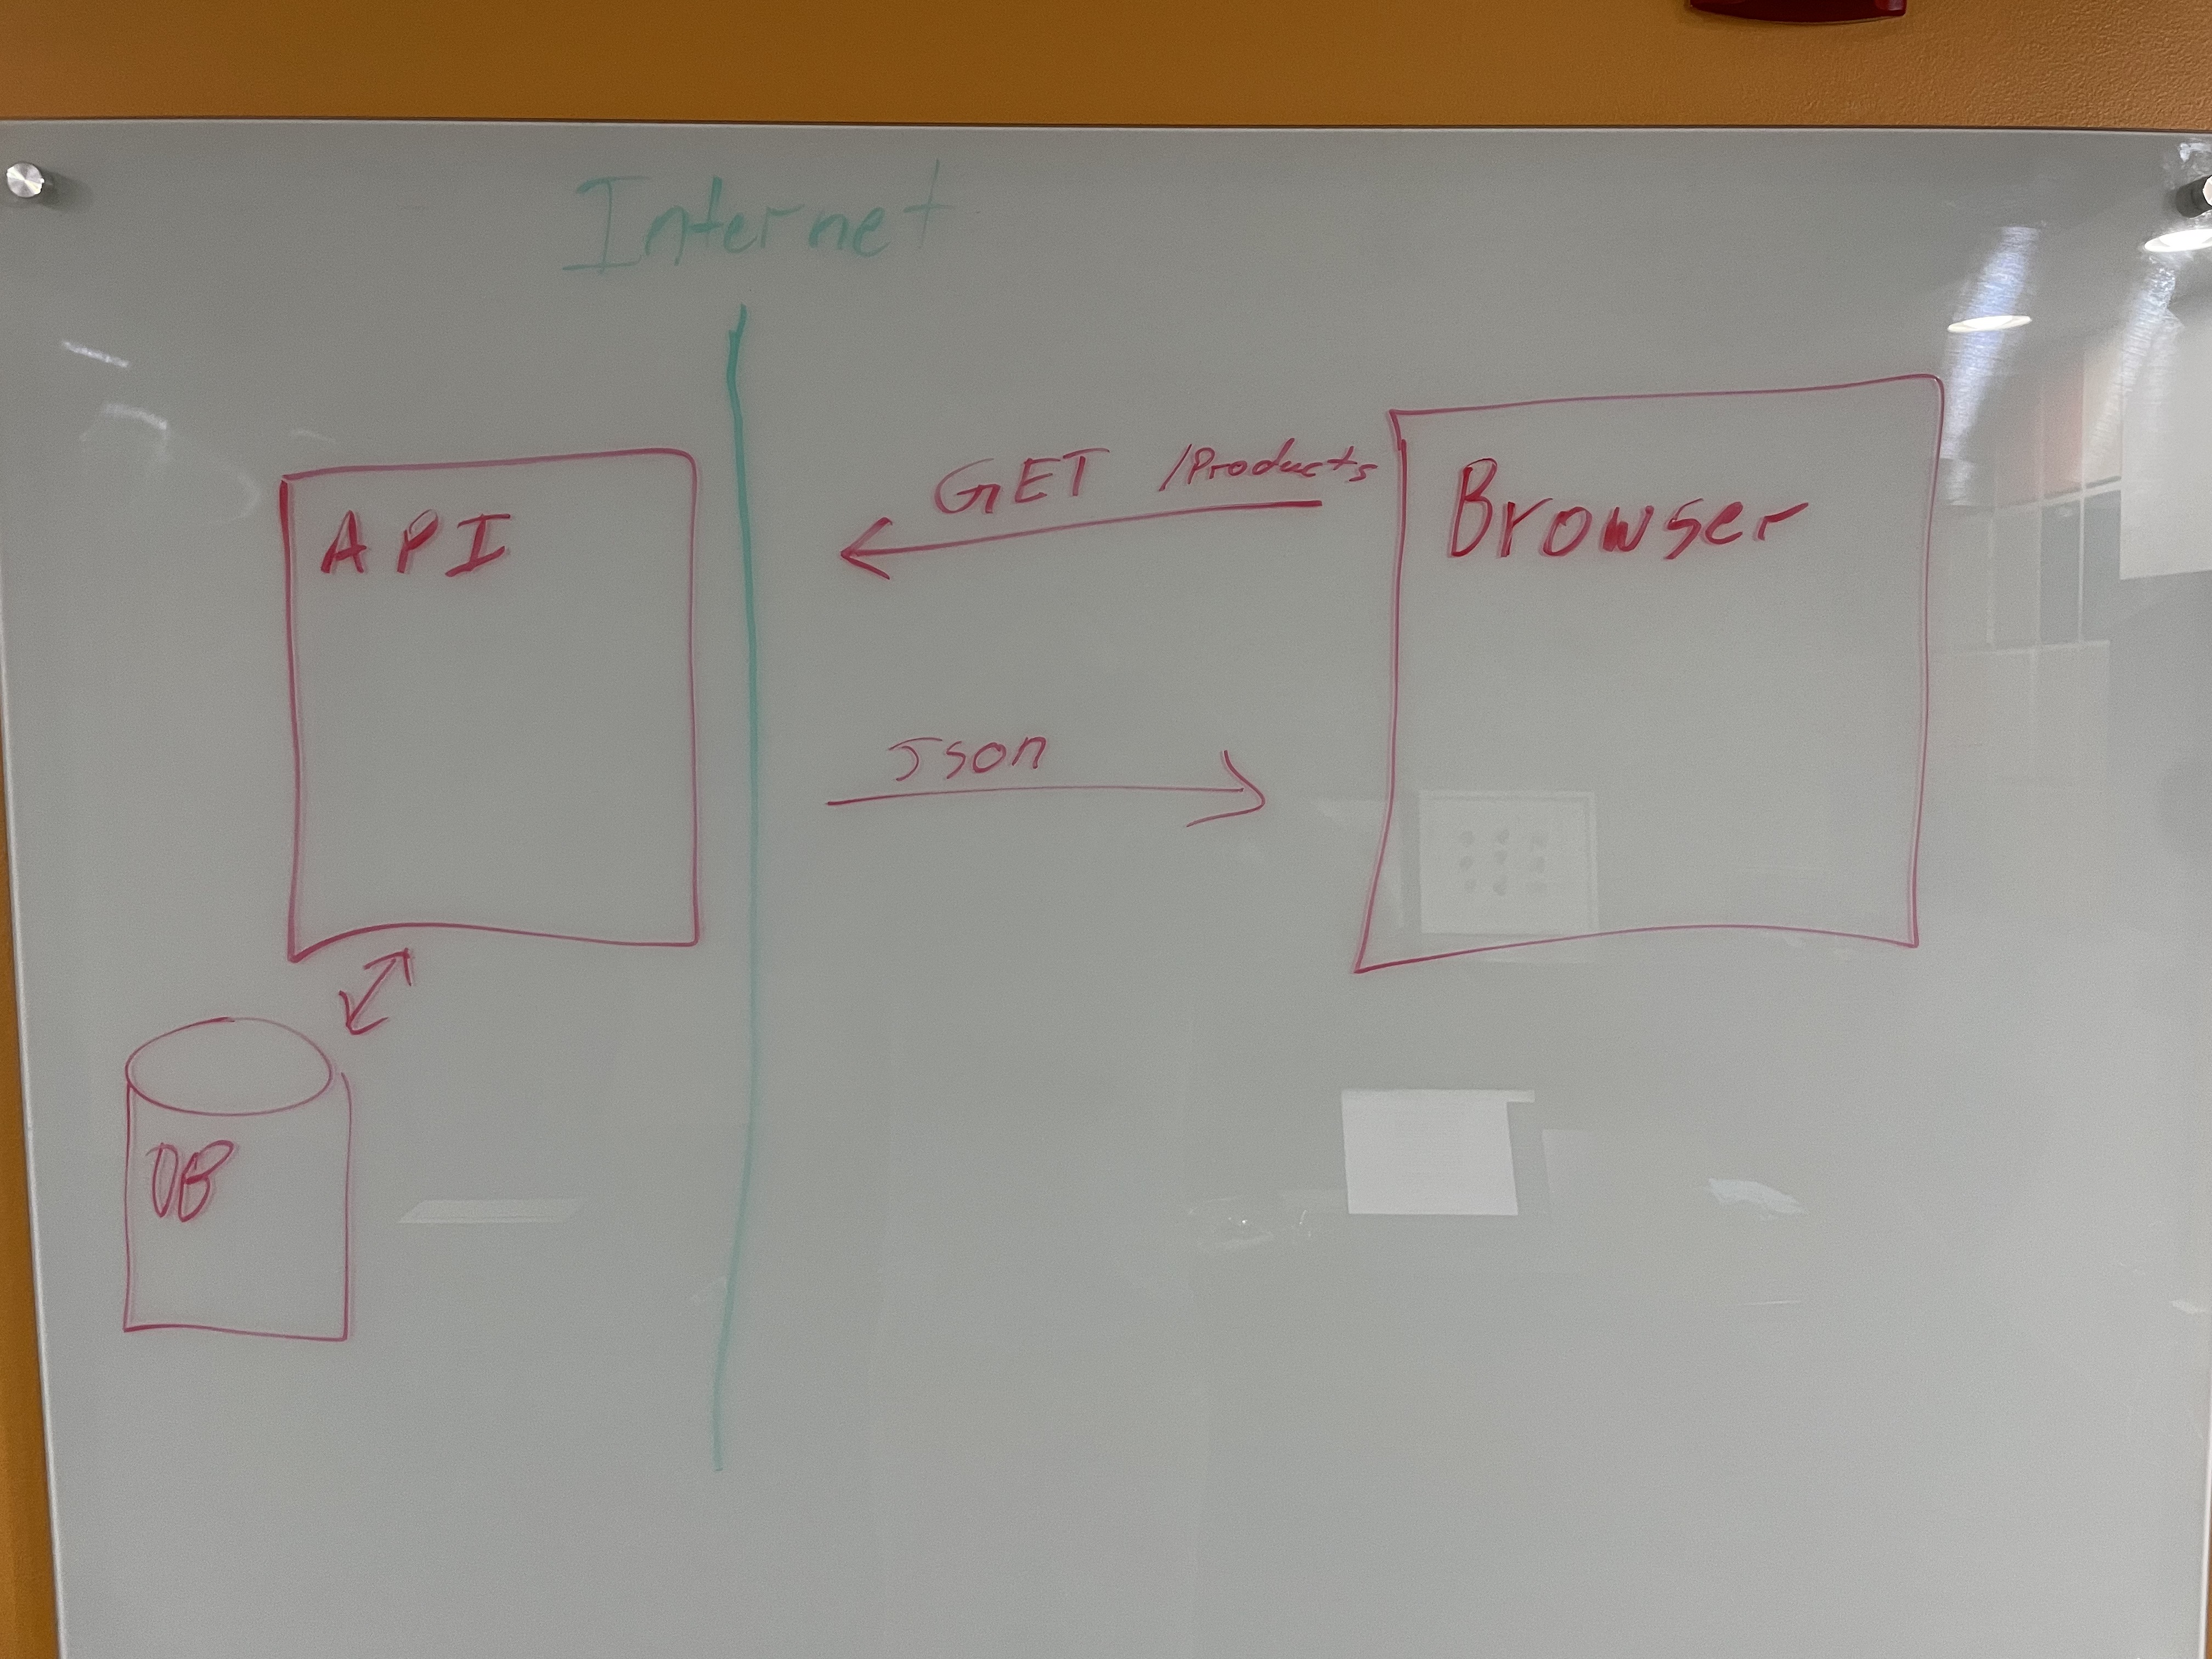 Internet
GET /Products
Browser
API
Json
DB